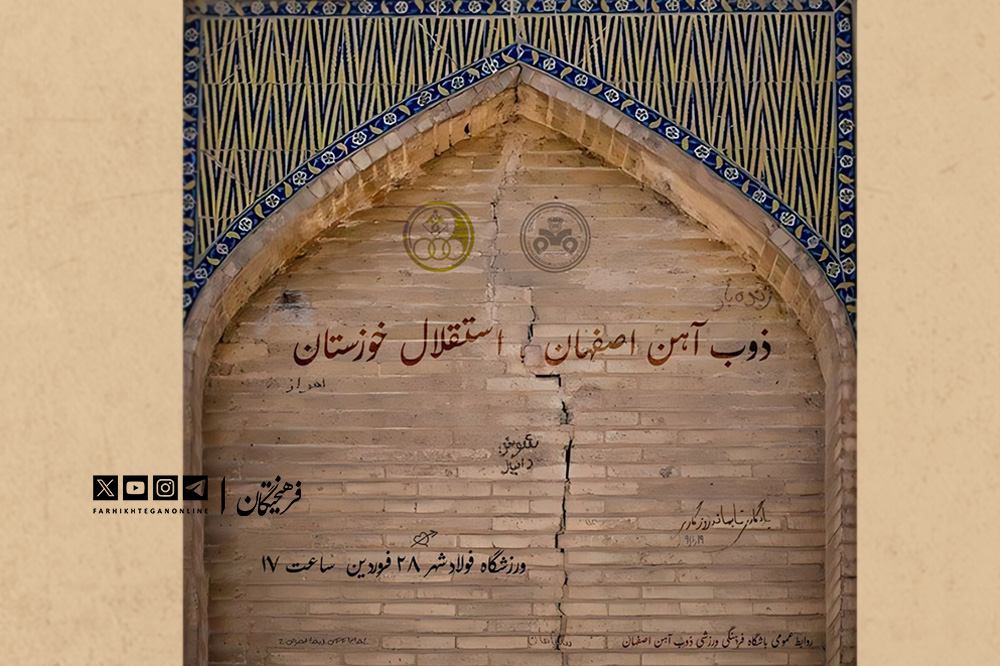 زنده باد
ذوب آهن اصفهان ، استقلال خوزستان
اهواز
دانیال
یادگاری
FARHIKHTEGANONLINE
فرهیختگان
ورزشگاه فولادشهر ۲۸ فروردین ساعت ۱۷
روابط عمومی باشگاه فرهنگی ورزشی ذوب آهن اصفهان